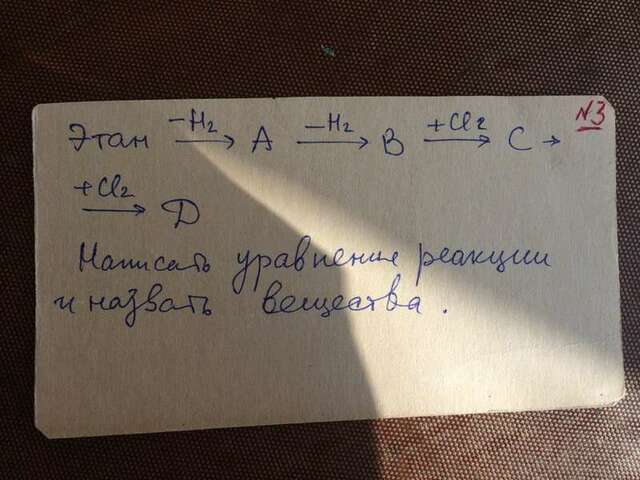 №3
Этан -H₂→ A -H₂→ B +Cl₂→ C →
+Cl₂→ D
Написать уравнение реакции
и назвать вещества.